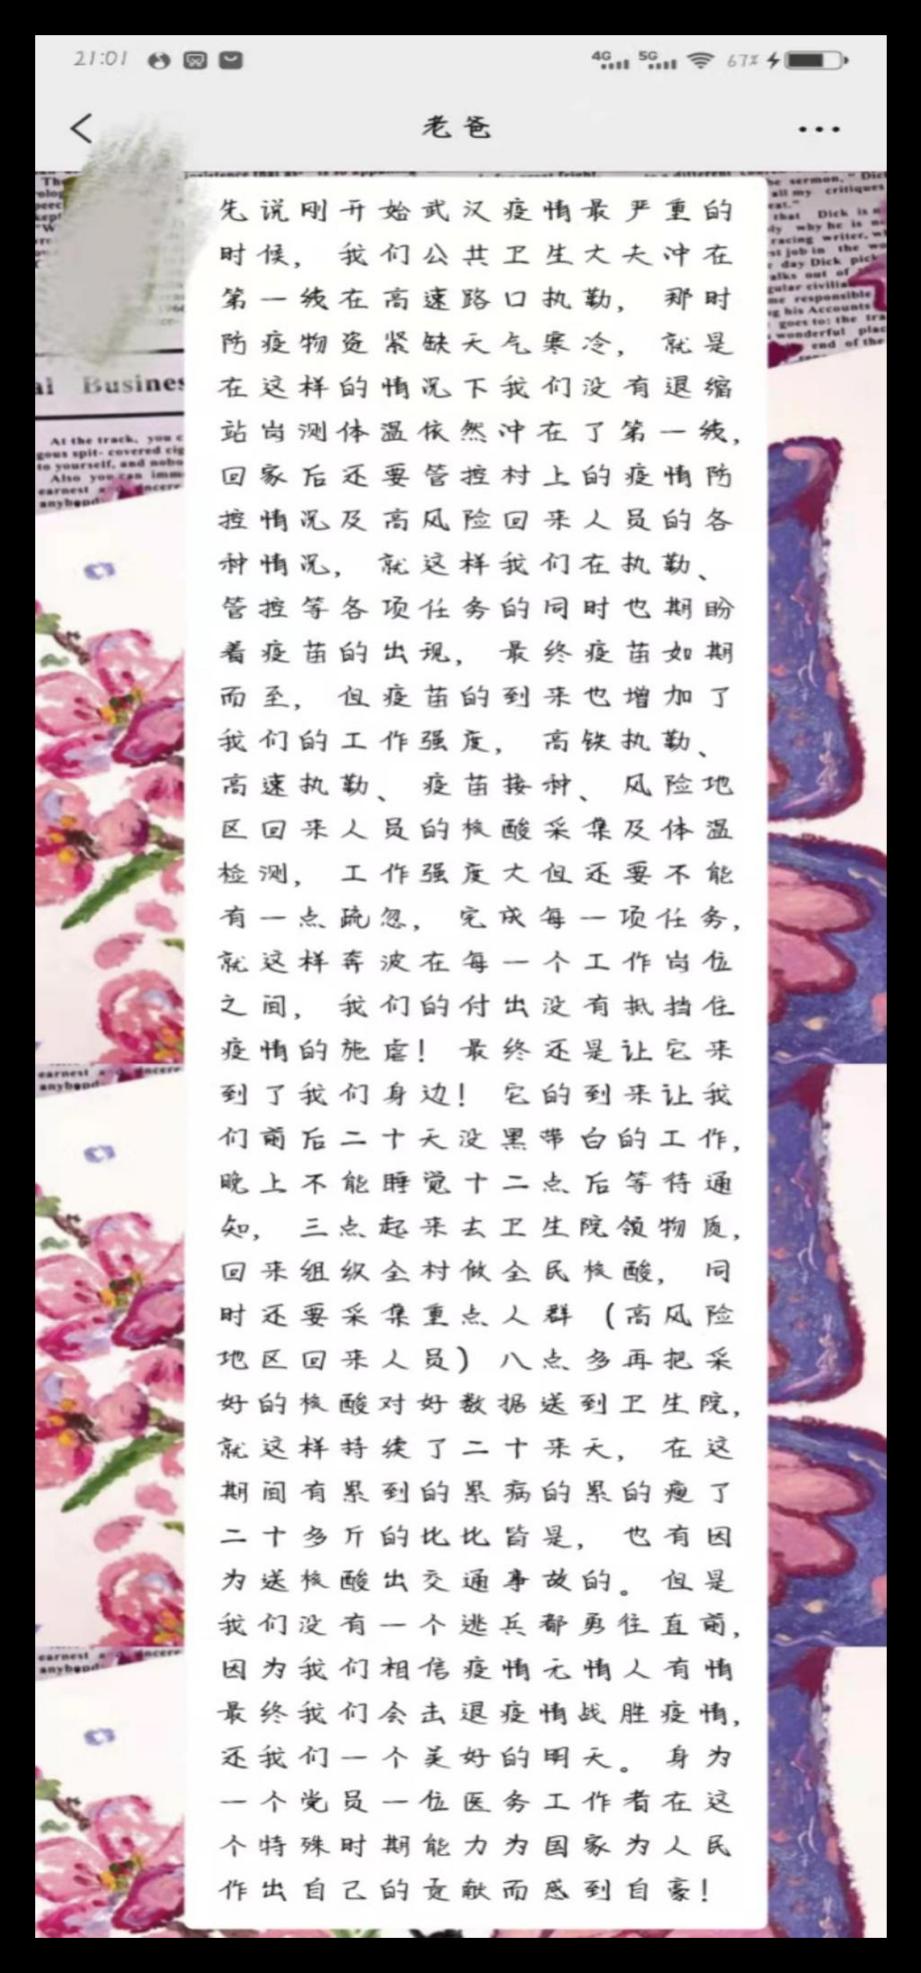 21:01
4G 5G 67%
老爸
先说刚开始武汉疫情最严重的
时候，我们公共卫生大夫冲在
第一线在高速路口执勤，那时
防疫物资紧缺天气寒冷，就是
在这样的情况下我们没有退缩
站岗测体温依然冲在了第一线，
回家后还要管控村上的疫情防
控情况及高风险回来人员的各
种情况，就这样我们在执勤、
管控等各项任务的同时也期盼
着疫苗的出现，最终疫苗如期
而至，但疫苗的到来也增加了
我们的工作强度，高铁执勤、
高速执勤、疫苗接种、风险地
区回来人员的核酸采集及体温
检测，工作强度大但还要不能
有一点疏忽，完成每一项任务，
就这样奔波在每一个工作岗位
之间，我们的付出没有抵挡住
疫情的施虐！最终还是让它来
到了我们身边！它的到来让我
们前后二十天没黑带白的工作，
晚上不能睡觉十二点后等待通
知，三点起来去卫生院领物质，
回来组织全村做全民核酸，同
时还要采集重点人群（高风险
地区回来人员）八点多再把采
好的核酸对好数据送到卫生院，
就这样持续了二十来天，在这
期间有累到的累病的累的瘦了
二十多斤的比比皆是，也有因
为送核酸出交通事故的。但是
我们没有一个逃兵都勇往直前，
因为我们相信疫情无情人有情
最终我们会击退疫情战胜疫情，
还我们一个美好的明天。身为
一个党员一位医务工作者在这
个特殊时期能力为国家为人民
作出自己的贡献而感到自豪！